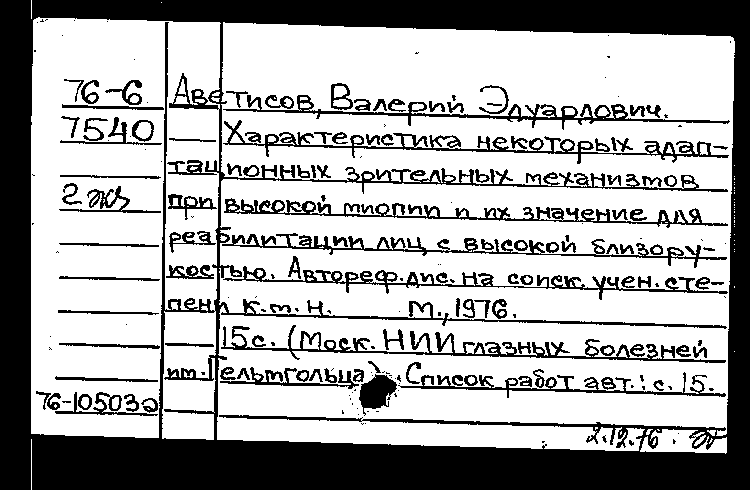 76-6 Аветисов, Валерий Эдуардович.
7540 Характеристика некоторых адап-
тационных зрительных механизмов
2 экз при высокой миопии и их значение для
реабилитации лиц с высокой близору-
костью. Автореф. дис. на соиск. учен. сте-
пени к.м.н. М., 1976.
15с. (Моск. НИИ глазных болезней
им. Гельмгольца) Список работ авт.: с. 15.
76-10503э
2.12.76.